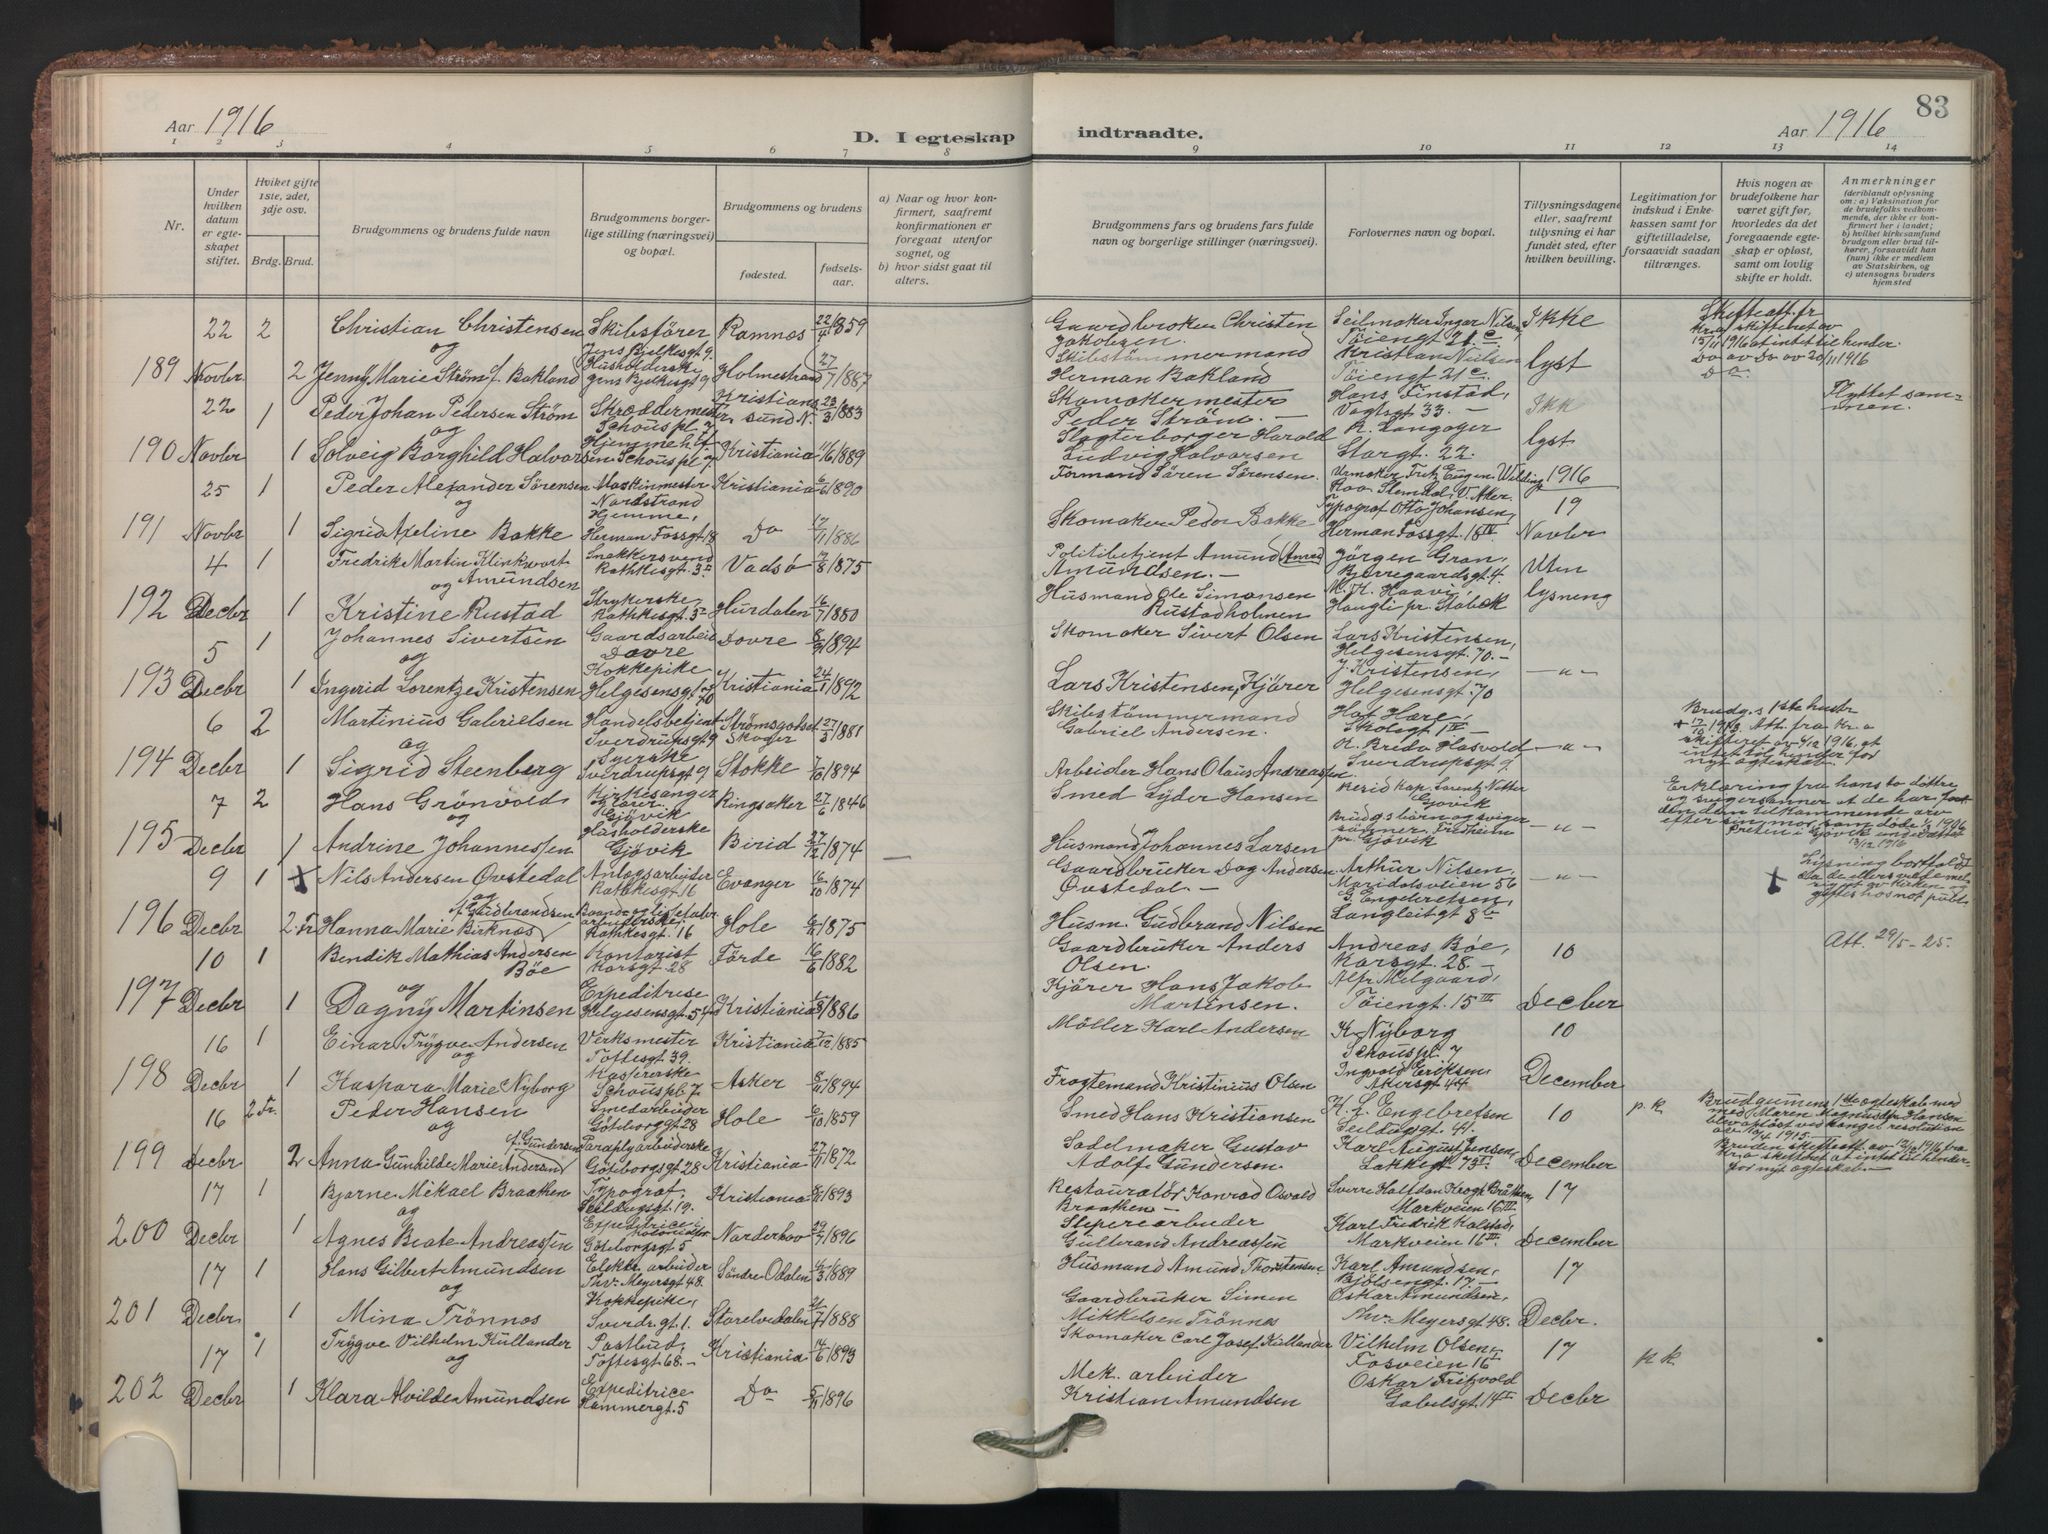 Aar 1916
D. I egteskap indtraadte.
Aar 1916
83
1 2 3 4 5 6 7 8 9 10 11 12 13 14
Nr.
Under hvilken datum er egteskapet stiftet.
Hvilket gifte 1ste, 2det, 3dje osv.
Brdg. Brud.
Brudgommens og brudens fulde navn
Brudgommens borgerlige stilling (næringsvei) og bopæl.
Brudgommens og brudens
fødested.
fødselsaar.
a) Naar og hvor konfirmert, saafremt konfirmationen er foregaat utenfor sognet, og
b) hvor sidst gaat til alters.
Brudgommens fars og brudens fars fulde navn og borgerlige stillinger (næringsvei).
Forlovernes navn og bopæl.
Tillysningsdagene eller, saafremt tillysning ei har fundet sted, efter hvilken bevilling.
Legitimation for indskud i Enkekassen samt for giftetilladelse, forsaavidt saadan tiltrænges.
Hvis nogen av brudefolkene har været gift før, hvorledes da det foregaaende egteskap er opløst, samt om lovlig skifte er holdt.
Anmerkninger
(deriblandt oplysning om: a) Vaksination for de brudefolks vedkommende, der ikke er konfirmert her i landet; b) hvilket kirkesamfund brudgom eller brud tilhører, forsaavidt han (hun) ikke er medlem av Statskirken, og c) utensogns bruders hjemsted
22 2 Christian Christensen Skibsfører Ramnæs 22/4 1859 Gaardbruker Christen Jakobsen. Seilmaker Ingar Nilsen, Töiengt 21 c. Ikke
og Jens Bjelkesgt 9.
189 Novbr 2 Jenny Marie Ström f. Bakland Husholderske Jens Bjelkesgt 9 Holmestrand 27/7 1887 Skibstömmermand Herman Bakland Kristian Nielsen Töiengt 21 c. lyst
Skifteatt. fr Kr.a skifteret av 15/11 1916 at intet til hinder.
Do av Do av 20/11 1916
22 1 Peder Johan Pedersen Ström Skræddermester Schouspl 7 Kristianssund N. 23/3 1883 Skomakermester Peder Ström. Hans Finstad, Vogtsgt 33. Ikk
Flyttet sammen.
og
190 Novbr 1 Solveig Borghild Halvorsen Hjemme h. f. Schouspl 7 Kristiania 11/6 1889 Slagterborger Harald Ludvig Halvorsen R. Langøger Storgt. 22. lyst
25 1 Peder Alexander Sörensen Maskinmester Nordstrand Kristiania 6/6 1890 Formand Sören Sörensen. Urmaker Fritz Eugen Wilding Roa Slemdal, V. Aker. 1916
og
191 Novbr 1 Sigrid Apeline Bakke Hjemme, Herman Fossgt 18 Do 17/11 1886 Skomaker Peder Bakke Typograf Otto Johansen, Herman Fossgt. 18 IV 19 Novbr
4 1 Fredrik Martin Klinkwort Amundsen Snekkersvend Rathkesgt. 3 Vadsö 17/8 1875 Politibetjent Amund Amundsen. Jörgen Gran, Bjerregaardsgt. 4. Uten
og
192 Decbr 1 Kristine Rustad Strykerske, Rathkesgt. 3 Hurdalen 16/7 1880 Husmand Ole Simonsen Rustadholmen M. H. Haavi, Haugli pr. Stabæk lysning
5 1 Johannes Sivertsen Gaardsarbeid Dovre Dovre 8/9 1894 Skomaker Sivert Olsen Lars Kristensen, Helgesensgt. 70.
og
193 Decbr 1 Ingerid Lorentze Kristensen Kokkepike Helgesensgt. 70 Kristiania 24/1 1892 Lars Kristensen, Kjörer J. Kristensen, Helgesensgt. 70 — " —
6 2 Martinius Gabrielsen Handelsbetjent Sverdrupsgt 9 Strömsgodset Skoger 27/3 1881 Skibstömmermand Gabriel Andersen.
Brudg.s 1ste hustr + 17/10 1913. Att. fra Kr.a skifteret av 4/12 1916. at intet til hinder for nyt egteskab.
og
194 Decbr 1 Sigrid Steenberg Syerske Sverdrupsgt 9 Stokke 7/10 1894 Arbeider Hans Olaus Andreassen Sverdrupsgt 9. — " —
7 2 Hans Grönvold Kirkesanger og lærer Gjövik Ringsaker 27/6 1846 Smed Lyder Hansen Gjövik
Erklæring fra hans to döttre og svigersønner
og
195 Decbr 1 Andrine Johannessen Husholderske Gjövik Birid 27/12 1874 Husmand Johannes Larsen Brudgs barn og svigersønner, Fredheim pr. Gjövik — " —
9 1 Nils Andersen Øvstedal Anlægsarbeider Rathkesgt 16 Evanger 16/10 1874 Gaardbruker Dag Andersen Øvstedal. Arthur Nilsen, Maridalsveien 56 — " —
og
196 Decbr 2. Fr Hanna Marie Birknes f. Gudbrandsen Rathkesgt. 16 Hole 1875 Husm. Gudbrand Nilsen G. Engebretsen, Langleitgt 8 b
10 1 Bendik Mathias Andersen Böe Kontorist Korsgt 28 Förde 16/6 1882 Gaardbruker Anders Olsen. Andreas Böe, Korsgt. 28. 10
Att. 29/5-25.
og
197 Decbr 1 Dagny Martinsen Expeditrise Helgesensgt. 54 Kristiania 1886 Kjörer Hans Jakob Martinsen. Alfr Melgaard, Töiengt. 15 III Decber
16 1 Einar Trygve Andersen Verksmester Toftesgt. 39. Kristiania 7/12 1885 Möller Karl Andersen K. Nyborg Schouspl. 7 10
og
198 Decbr 1 Kaspara Marie Nyborg Kasserske Schouspl. 7. Asker 1894 Fragtemand Kristinius Olsen Ingvold Eriksen, Akersgt. 44 December
16 2 Fr. Peder Hansen Smedarbeider Göteborggt 28 Hole 1859 Smed Hans Kristiansen H. L. Engebretsen Seildugsgt. 41. 10 p. k.
Brudgumens 1ste egteskab med Maren Magnusdtr Hansen blev oplöst ved kongel resolution av 10/4 1915.
Bruden skifteatt. av 12/12 1916 fra Kr.a skifteret at intet til hinder for nyt egteskab.
og
199 Decbr 2 Anna Gunhilde Marie Andersen f. Gundersen Paraplyarbeiderske Göteborgsgt 28 Kristiania 27/11 1872 Sadelmaker Gustav Adolf Gundersen. Karl August Jensen, Lakkegt 73 December
17 1 Bjarne Mikael Braathen Typograf, Seildugsgt. 19. Kristiania 1893 Restauratör Konrad Osvald Braathen Markveien 16 III 17
og
200 Decbr 1 Agnes Beate Andreassen Expeditrice i Kolonialfor Göteborgsgt. 5 Norderhov 29/7 1896 Sliperearbeider Gulbrand Andreassen Karl Fredrik Kolstad, Markveien 16 III. December
17 1 Hans Gilbert Amundsen Elektr. arbeider Thv. Meyersgt 48. Söndre Odalen 1889 Husmand Amund Thorstensen Karl Amundsen, Bjölsengt. 17. 17
og
201 Decbr 1 Mina Trönnes Kokkepike, Sverdr.gt 1. Storelvedalen 1888 Gaardbruker Simen Mikkelsen Trönnes Oskar Amundsen, Thv. Meyersgt 48. Decbr.
17 1 Trygve Vilhelm Kullander Postbud, Toftesgt. 68. Kristiania 14/6 1893 Skomaker Carl Josef Kullander Vilhelm Olsen, Fosveien 16 I 17 p. k.
og
202 Decbr 1 Klara Alvilde Amundsen Expeditrice Hammergt. 5 Do 5/11 1896 Mek. arbeider Kristian Amundsen Oskar Fritzvold Gabelsgt. 14 I Decbr